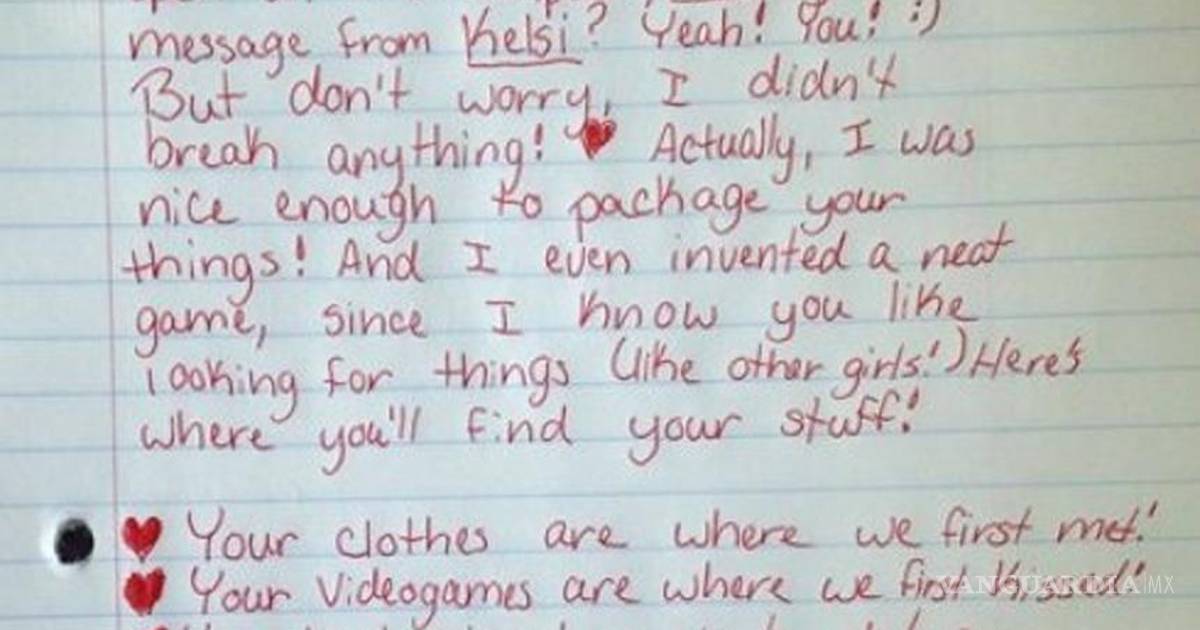 message from Kelsi? Yeah! You! :)
But don't worry, I didn't
break anything! ♥ Actually, I was
nice enough to package your
things! And I even invented a neat
game, since I know you like
looking for things (like other girls!) Here's
where you'll find your stuff!
♥ Your clothes are where we first met!
♥ Your Videogames are where we first kissed!
VANGUARDIA MX